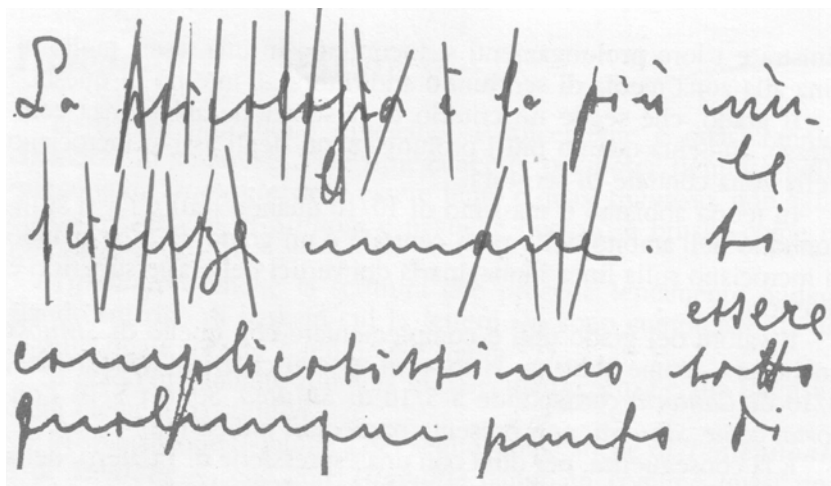 La psicologia è la più
le
scienze umane.
essere
complicatissimo sotto
qualunque punto di